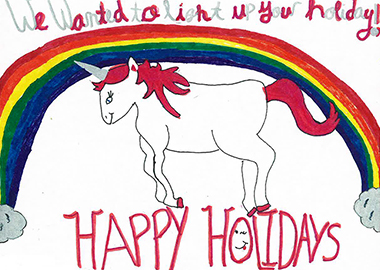 We Wanted to light up your holiday!
HAPPY HOLIDAYS